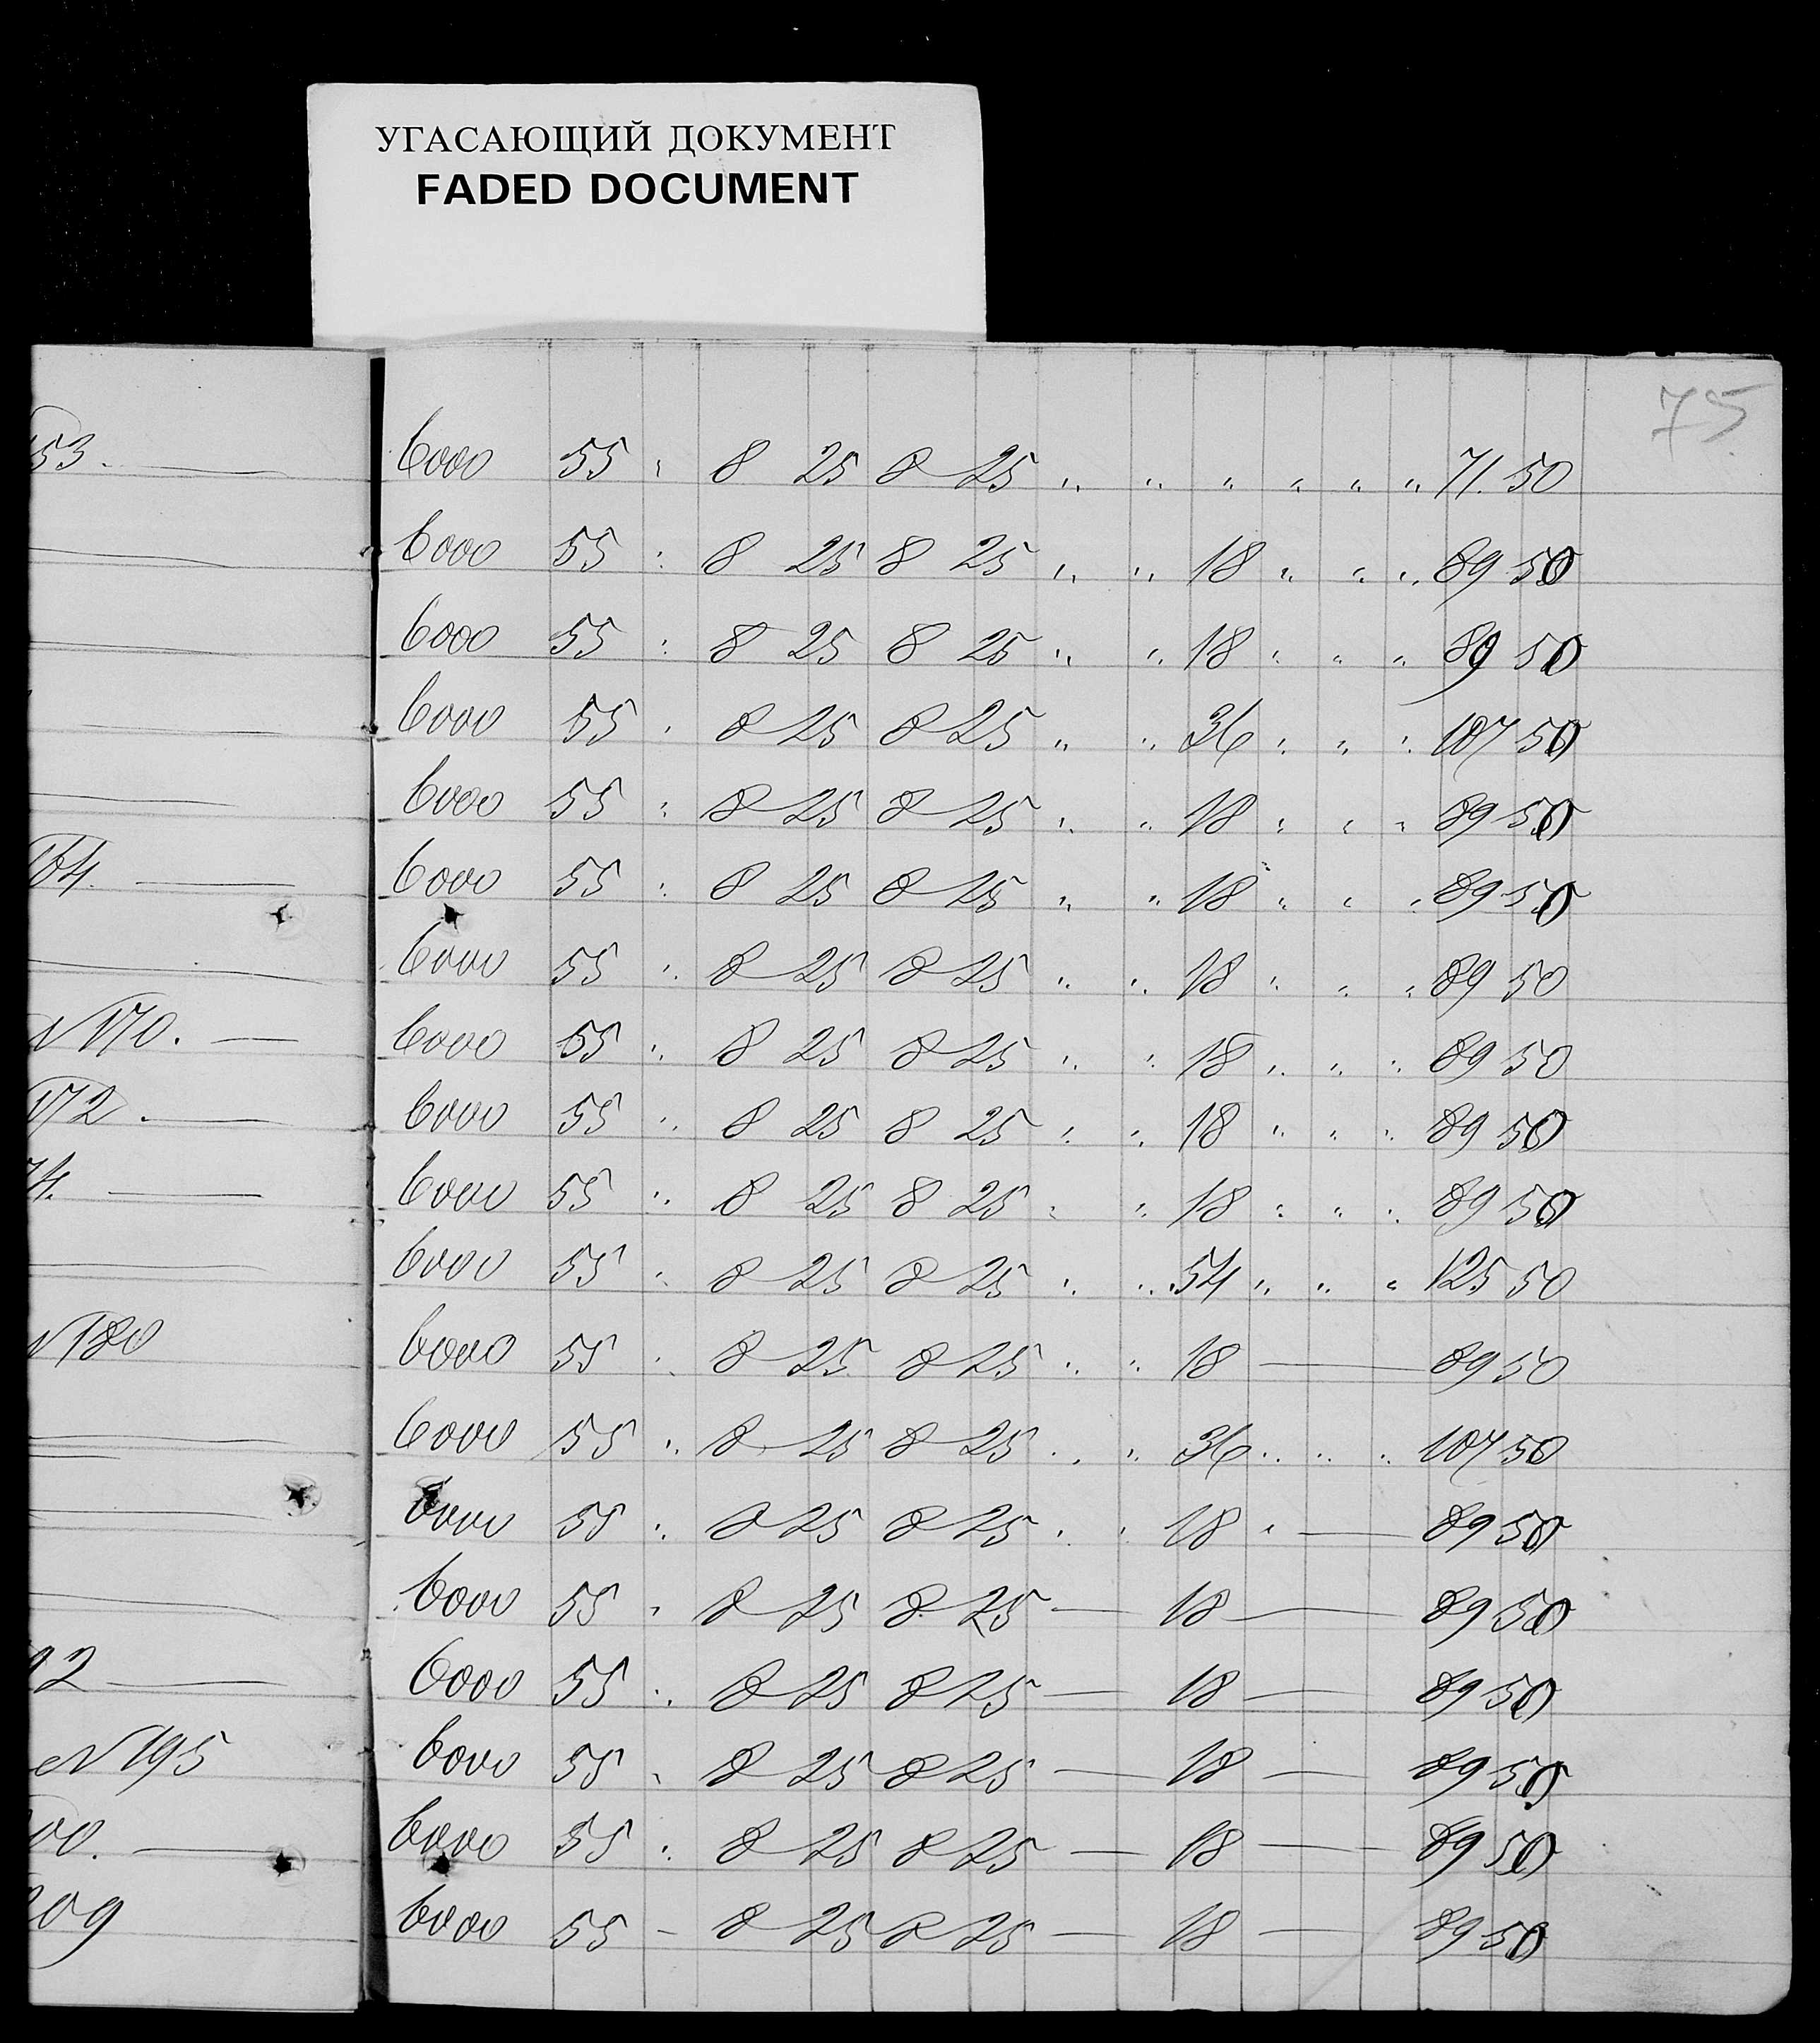 УГАСАЮЩИЙ ДОКУМЕНТ
FADED DOCUMENT
75
53. — 6000 55 " 8 25 8 25 " " " " " " 71. 50
6000 55 " 8 25 8 25 " " 18 " " " 89 50
6000 55 " 8 25 8 25 " " 18 " " " 89 50
6000 55 " 8 25 8 25 " " 36 " " " 107 50
6000 55 " 8 25 8 25 " " 18 " " " 89 50
64. — 6000 55 " 8 25 8 25 " " 18 " " " 89 50
6000 55 " 8 25 8 25 " " 18 " " " 89 50
№ 170. — 6000 55 " 8 25 8 25 " " 18 " " " 89 50
172. — 6000 55 " 8 25 8 25 " " 18 " " " 89 50
74. — 6000 55 " 8 25 8 25 " " 18 " " " 89 50
6000 55 " 8 25 8 25 " " 54 " " " 125 50
№ 180 6000 55 " 8 25 8 25 " " 18 — 89 50
6000 55 " 8 25 8 25 " " 36 " " " 107 50
6000 55 " 8 25 8 25 " " 18 " — 89 50
6000 55 " 8 25 8 25 — 18 — 89 50
92 — 6000 55 " 8 25 8 25 — 18 — 89 50
№ 195 6000 55 " 8 25 8 25 — 18 — 89 50
00. — 6000 55 " 8 25 8 25 — 18 — 89 50
209 6000 55 — 8 25 8 25 — 18 — 89 50